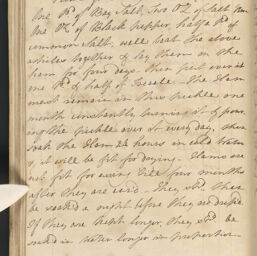 One lb of Bay Salt, Two Oz of Salt
One Oz of Black pepper, half a lb of
common Salt, well beat the above
articles together & lay them on the
ham for four days. then put over it
one lb & half of Treacle. The Ham
must remain in this pickle one
month constantly turning it & pour-
ing the pickle over it every day, then
soak the Ham 24 hours in cold water
& it will be fit for drying - Hams are
not fit for using till four months
after they are cur'd - They shd then
be soak'd a night before they are dress'd.
If they are kept longer, they shd be
soaked in water longer in proportion.